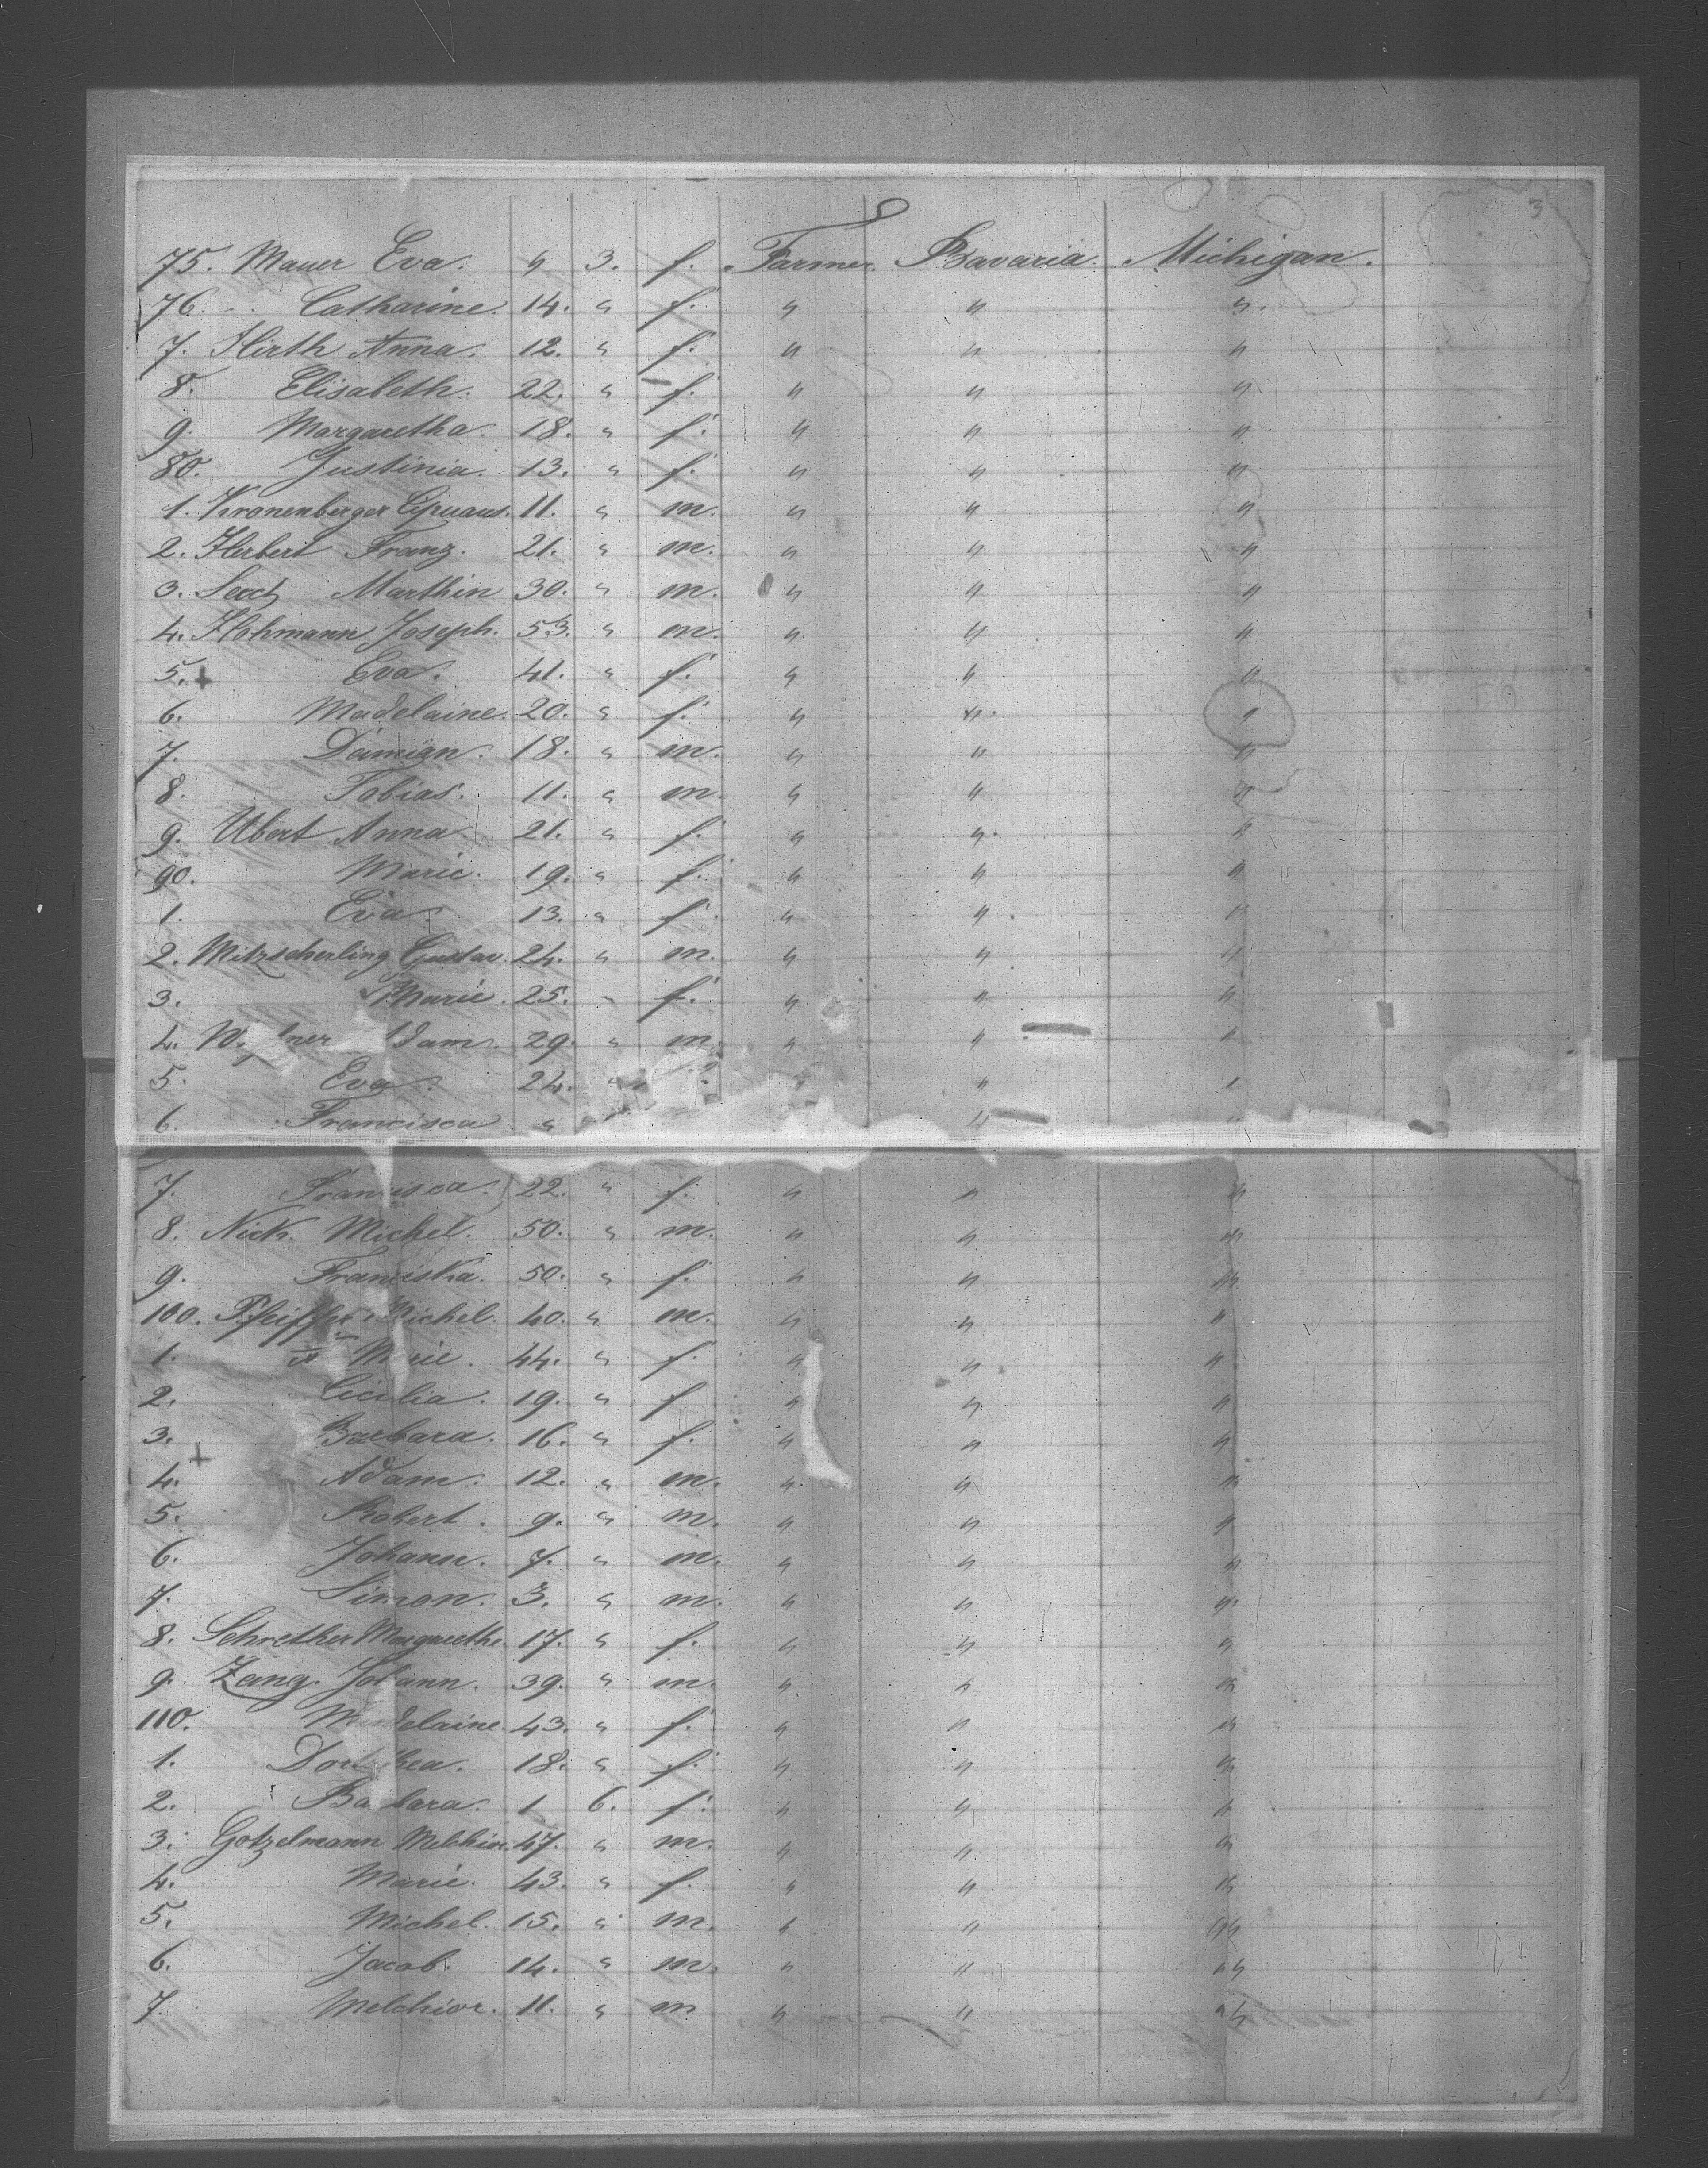 3
75. Mauer Eva. " 3. f. Farmer. Bavaria. Michigan.
76. " Catharine. 14. " f. " " ".
7. Hirth Anna. 12. " f. " " "
8. Elisabeth. 22. " f. " " "
9. Margaretha. 18. " f. " " "
80. Justinia. 13. " f. " " "
1. Kronenberger 11. " m. " " "
2. Herbert Franz. 21. " m. " " "
3. Marthin 30. " m. " " "
4. Hohmann Joseph. 53. " m. " " "
5. + Eva. 41. " f. " " "
6. Madelaine. 20. " f. " " "
7. Damian. 18. " m. " " "
8. Tobias. 11. " m. " " "
9. Ubert Anna. 21. " f. " " "
90. Marie. 19. " f. " " "
1. Eva. 13. " f. " " "
2. Mitzscherling Gustav. 24. " m. " " "
3. Marie. 25. " f. " " "
4. dam. 29. " m. " " "
5. Eva. 24. " " " "
6. Francisca " " "
7. Francisca. 22. " f. " " "
8. Nick. Michel. 50. " m. " " "
9. Franciska. 50. " f. " " "
100. Pfeiffer Michel. 40. " m. " " "
1. " Marie. 44. " f. " " "
2. Cicilia. 19. " f " " "
3. Barbara. 16. " f. " " "
4. + Adam. 12. " m. " " "
5. Robert. 9. " m. " " "
6. Johann. 7. " m. " " "
7. Simon. 3. " m. " " "
8. Schrether Margarethe. 17. " f. " " "
9. Zang. Johann. 39. " m. " " "
110. Madelaine. 43. " f. " " "
1. Dorothea. 18. " f. " " "
2. Barbara. 1 6. f. " " "
3. Gotzelmann Melchior. 47. " m. " " "
4. Marie. 43. " f. " " "
5. Michel. 15. " m. " " "
6. Jacob. 14. " m. " " "
7. Melchior. 11. " m " " "